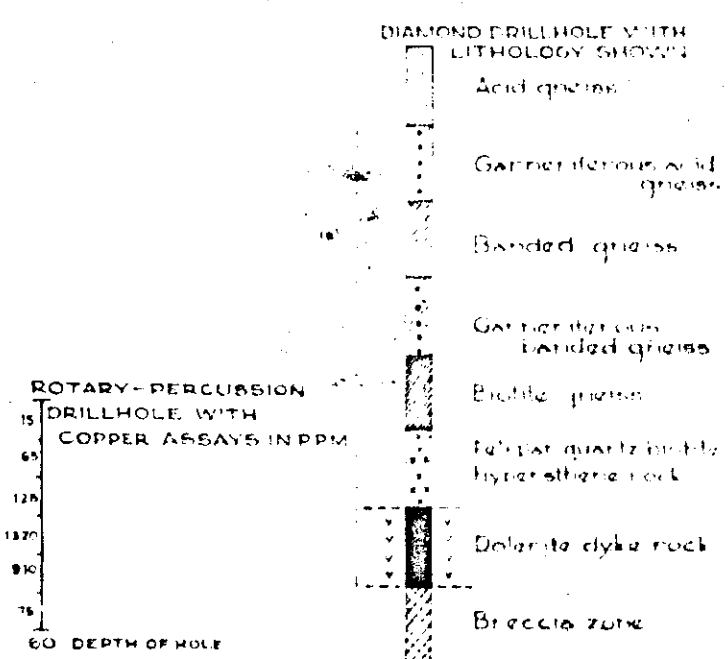 DIAMOND DRILLHOLE WITH
LITHOLOGY SHOWN
Acid gneiss
Garnetiferous acid
gneiss
Banded gneiss
Garnetiferous
banded gneiss
Biotite gneiss
Felspar quartz biotite
hypersthene rock
Dolerite dyke rock
Breccia zone
ROTARY-PERCUSSION
DRILLHOLE WITH
COPPER ASSAYS IN PPM
15
65
125
1370
910
75
60 DEPTH OF HOLE